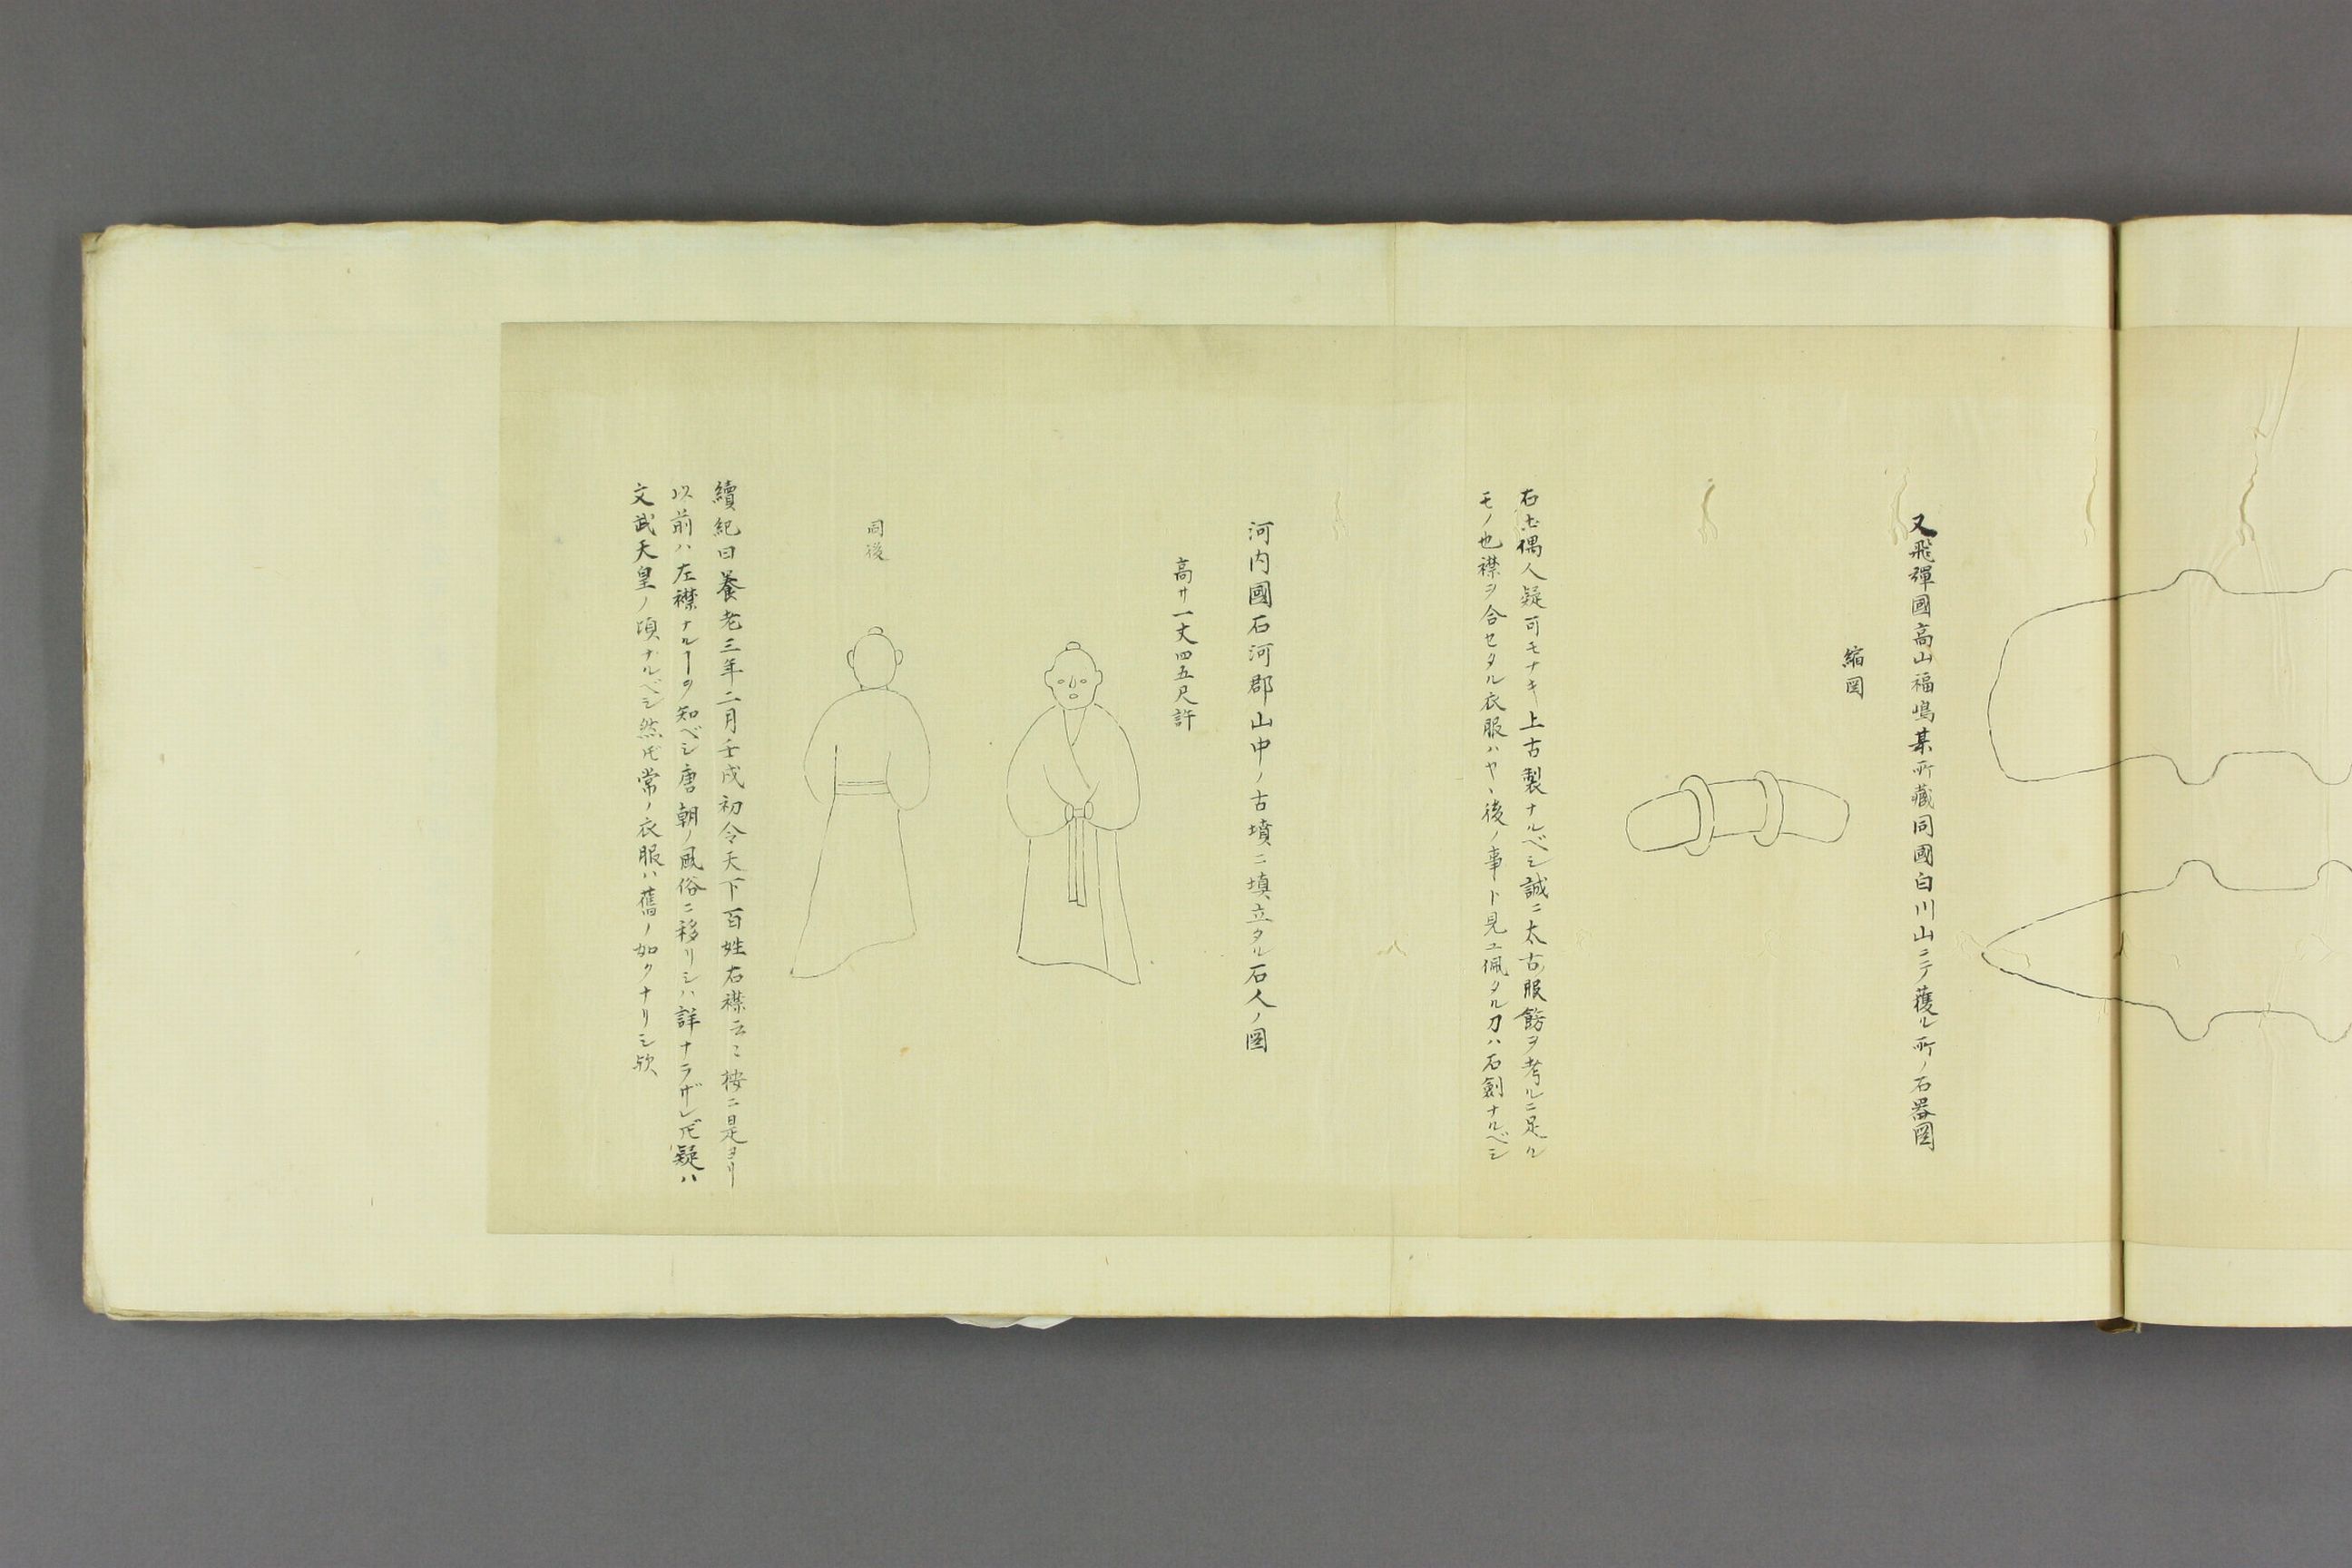 又飛彈國高山福嶋某所藏同國白川山ニテ獲ル所ノ石器圖
縮図
右土偶人疑可モナキ上古製ナルベシ誠ニ太古服飾ヲ考ルニ足ル
モノ也襟ヲ合セタル衣服ハヤヽ後ノ事ト見ユ佩タル刀ハ石劍ナルベシ
河内國石河郡山中ノ古墳ニ填立タル石人ノ圖
高サ一丈四五尺許
同後
續紀曰養老三年二月壬戌初令天下百姓右襟云〻按ニ是ヨリ
以前ハ左襟ナルヿヲ知ベシ唐朝ノ風俗ニ移リシハ詳ナラザレ𪜈疑ハ
文武天皇ノ頃ナルベシ然𪜈常ノ衣服ハ舊ノ如クナリシ歟